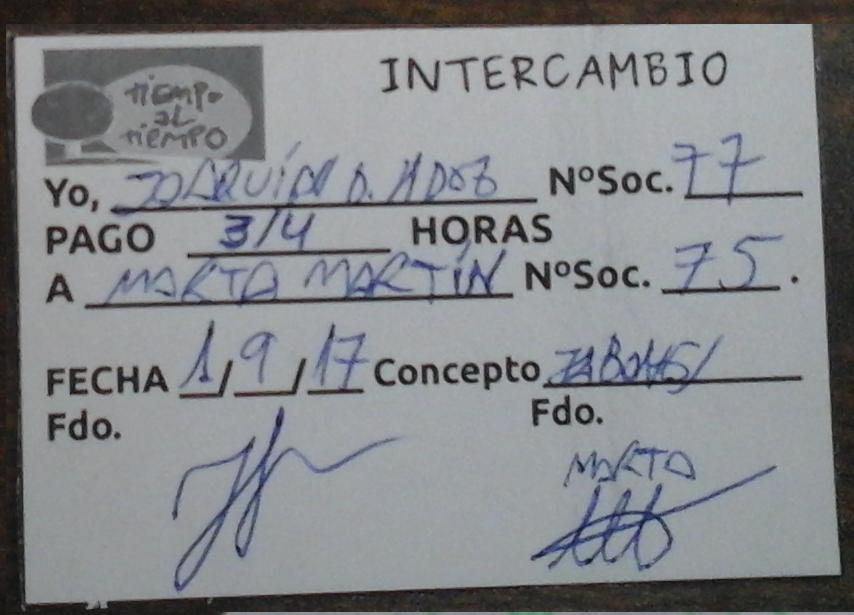 TIEMPO
AL
TIEMPO
INTERCAMBIO
Yo, JOAQUÍN D. NºSoc. 77
PAGO 3/4 HORAS
A MARTA MARTÍN NºSoc. 75.
FECHA 1/9/17 Concepto
Fdo. Fdo.
MARTA